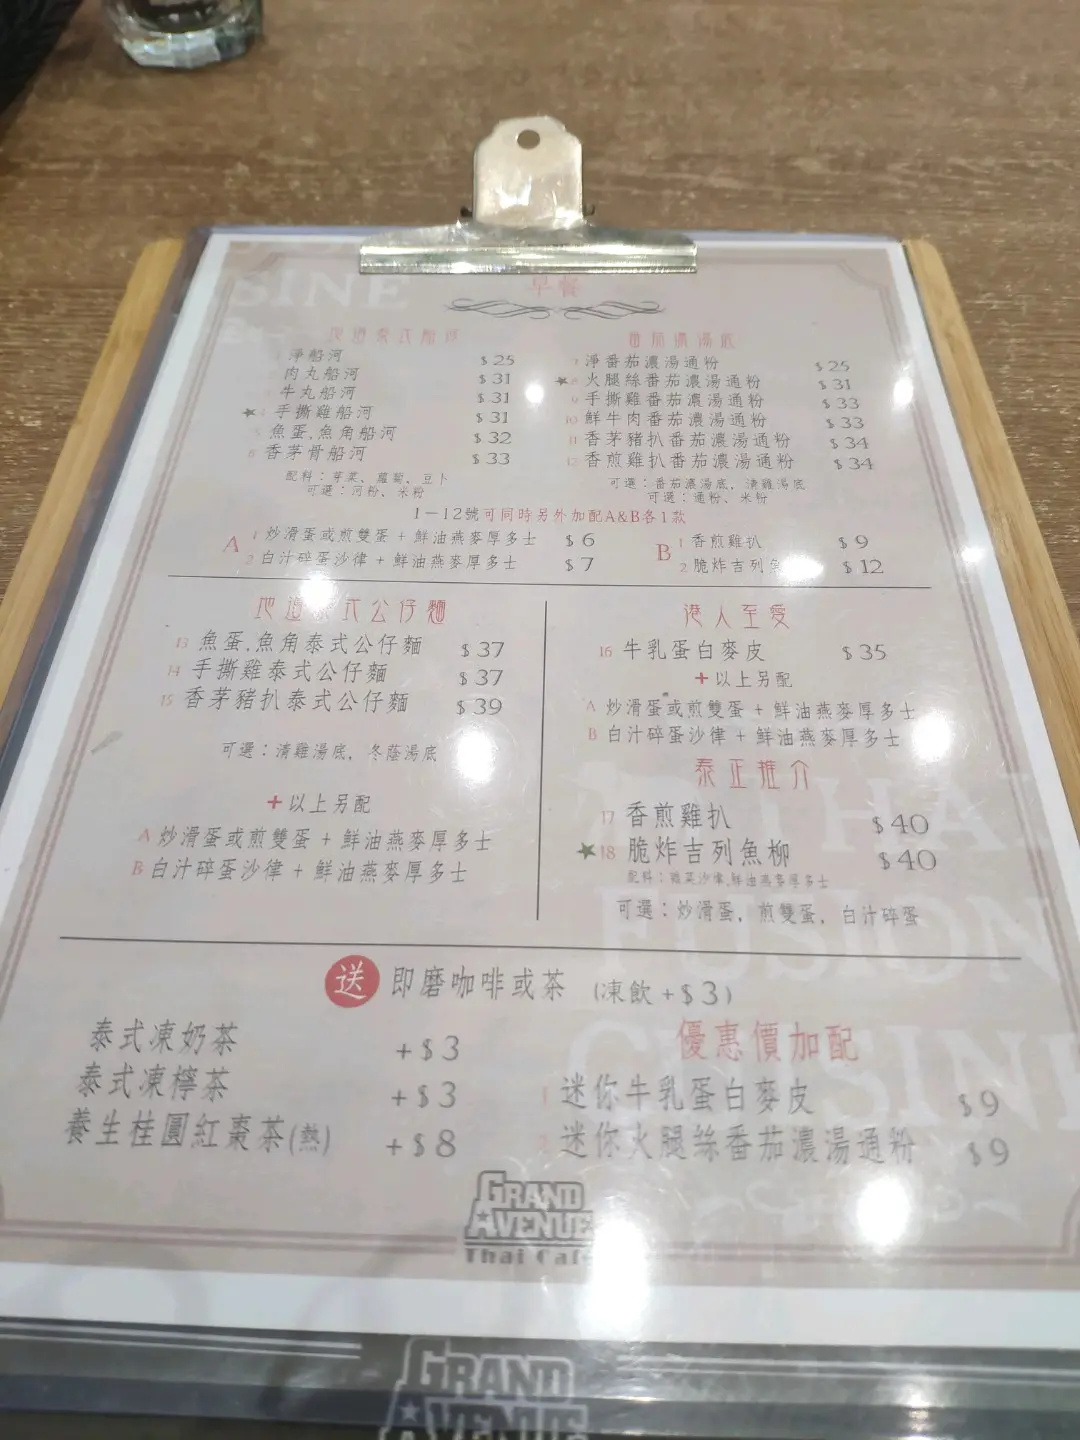 SINE
早餐
地道泰式船河
淨船河 $25
肉丸船河 $31
牛丸船河 $31
★ 4 手撕雞船河 $31
5 魚蛋,魚角船河 $32
6 香茅骨船河 $33
配料：芽菜、蘿蔔、豆卜
可選：河粉、米粉
番茄濃湯底
7 淨番茄濃湯通粉 $25
★ 8 火腿絲番茄濃湯通粉 $31
9 手撕雞番茄濃湯通粉 $33
10 鮮牛肉番茄濃湯通粉 $33
11 香茅豬扒番茄濃湯通粉 $34
12 香煎雞扒番茄濃湯通粉 $34
可選：番茄濃湯底、清雞湯底
可選：通粉、米粉
1－12號可同時另外加配A&B各1款
A
1 炒滑蛋或煎雙蛋 + 鮮油燕麥厚多士 $6
2 白汁碎蛋沙律 + 鮮油燕麥厚多士 $7
B
1 香煎雞扒 $9
2 脆炸吉列魚 $12
地道泰式公仔麵
13 魚蛋,魚角泰式公仔麵 $37
14 手撕雞泰式公仔麵 $37
15 香茅豬扒泰式公仔麵 $39
可選：清雞湯底，冬蔭湯底
+以上另配
A 炒滑蛋或煎雙蛋 + 鮮油燕麥厚多士
B 白汁碎蛋沙律 + 鮮油燕麥厚多士
港人至愛
16 牛乳蛋白麥皮 $35
+以上另配
A 炒滑蛋或煎雙蛋 + 鮮油燕麥厚多士
B 白汁碎蛋沙律 + 鮮油燕麥厚多士
泰正推介
17 香煎雞扒 $40
★18 脆炸吉列魚柳 $40
配料：雜菜沙律,鮮油燕麥厚多士
可選：炒滑蛋，煎雙蛋，白汁碎蛋
THAI
FUSION
CUISINE
送 即磨咖啡或茶 (凍飲+$3)
泰式凍奶茶 +$3
泰式凍檸茶 +$3
養生桂圓紅棗茶(熱) +$8
優惠價加配
1 迷你牛乳蛋白麥皮 $9
2 迷你火腿絲番茄濃湯通粉 $9
GRAND
AVENUE
Thai Cafe
GRAND
AVENUE